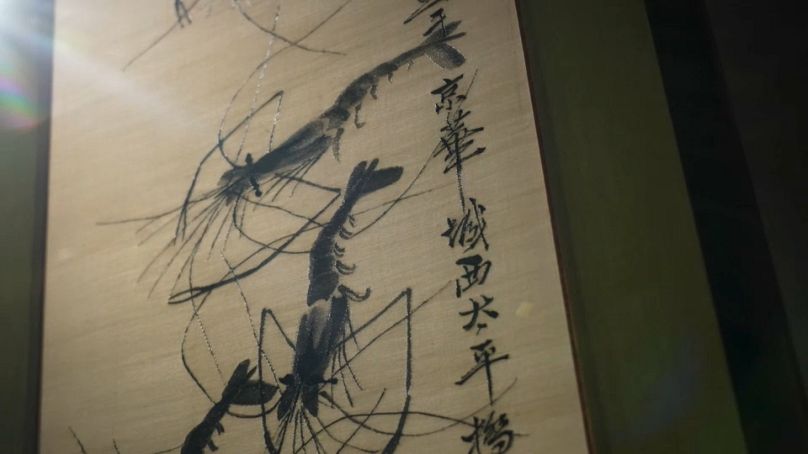 京華城西太平橋